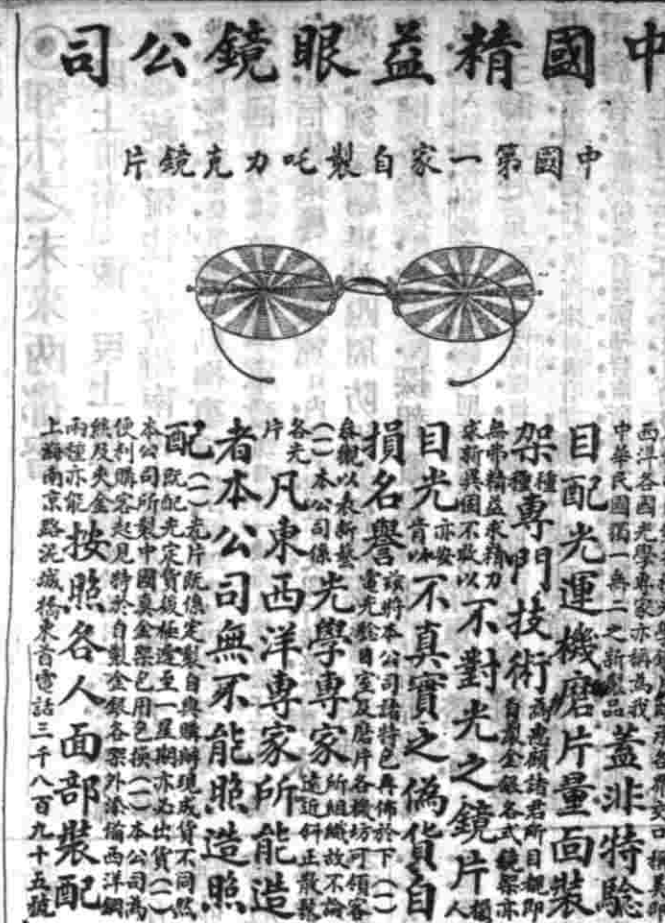 中國精益眼鏡公司
中國第一家自製吒力克鏡片
西洋各國光學專家亦稱為我
中華民國獨一無二之新出品蓋非特驗
目配光運機磨片量面裝
架種種專門技術為惠顧諸君所目覩即
自製金銀各式鏡架亦
無弗精益求精力
求新異固不敢以不對光之鏡片損人
目光亦安肯以不真實之偽貨自
損名譽茲將本公司諸特色再佈於下(一)
電光驗目室及磨片各機坊可領客
參觀以表新藝
(一)本公司係光學專家所組織故不論
遠近斜正散鬆
各光片凡東西洋專家所能造
者本公司無不能照造照
配(一)光片既係定製自與購辦現成貨不同然
既配光定貨後極遲至一星期亦必出貨(一)
本公司所製中國真金架包用包換(一)本公司為
便利購客起見特於自製金銀各架外添備西洋鋼
熊及夾金
兩種亦能按照各人面部裝配
上海南京路泥城橋東首電話三千八百九十五號